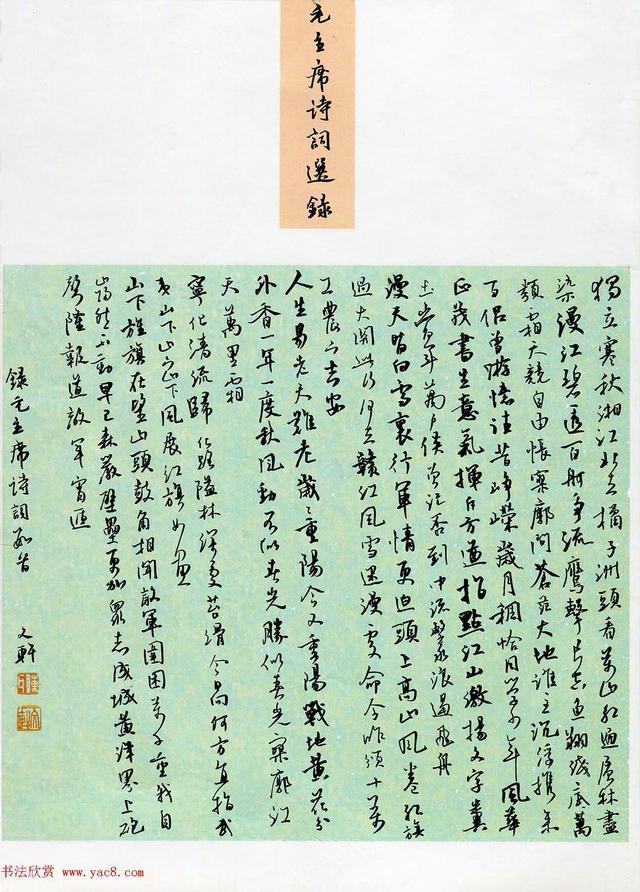 毛主席诗詞選録
獨立寒秋湘江北去橘子洲頭看萬山红遍層林盡
染漫江碧透百舸争流鷹擊長空魚翔淺底萬
類霜天競自由悵寥廓問蒼茫大地誰主沉浮攜来
百侣曾遊憶往昔峥嶸歲月稠恰同学少年風華
正茂書生意氣揮斥方遒指點江山激揚文字糞
土當年萬户侯曾記否到中流擊水浪遏飛舟
漫天皆白雪裏行軍情更迫頭上高山風卷红旗
過大関此行何去贛江風雪迷漫處命令昨頒十萬
工農下吉安
人生易老天難老歲〻重陽今又重陽戰地黄花分
外香一年一度秋風勁不似春光勝似春光寥廓江
天萬里霜
寧化清流歸化路隘林深苔滑今日何方直指武
夷山下山下山下風展红旗如畫
山下旌旗在望山頭鼓角相聞敵軍圍困萬千重我自
巋然不動早已森嚴壁壘更加衆志成城黄洋界上砲
聲隆報道敵軍宵遁
録毛主席诗詞数首
文軒
书法欣赏 www.yac8.com